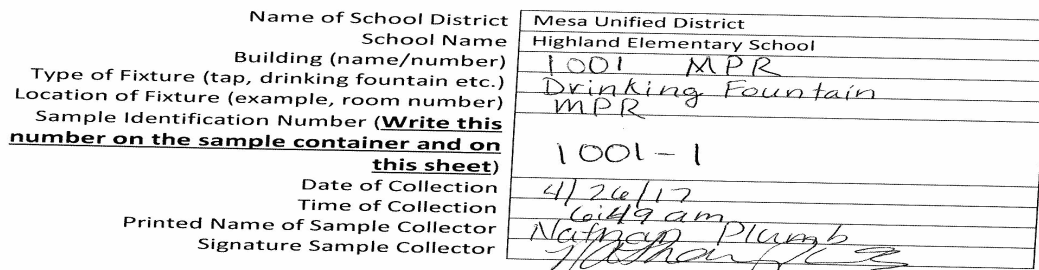 Name of School District Mesa Unified District
School Name Highland Elementary School
Building (name/number) 1001 MPR
Type of Fixture (tap, drinking fountain etc.) Drinking Fountain
Location of Fixture (example, room number) MPR
Sample Identification Number (Write this
number on the sample container and on
this sheet) 1001-1
Date of Collection 4/26/17
Time of Collection 6:49 am
Printed Name of Sample Collector Nathan Plumb
Signature Sample Collector